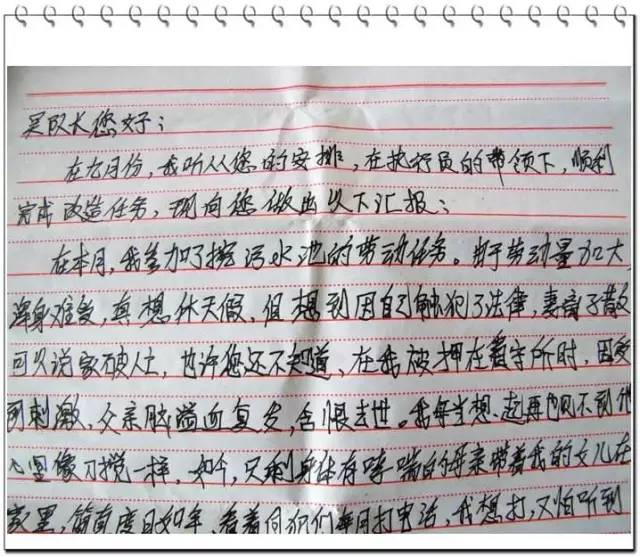 吴队长您好；
在九月份，我听从您的安排，在执行员的带领下，顺利
完成改造任务，现向您做出以下汇报；
在本月，我参加了挖污水池的劳动任务。由于劳动量加大，
浑身难受，真想休天假、但想到因自己触犯了法律，妻离子散
可以说家破人亡，也许您还不知道、在我被押在看守所时，因受
到刺激，父亲脑溢血复发，含恨去世。我每当想起再也见不到他
心里像刀搅一样，如今，只剩身体有哮喘的母亲带着我的女儿在
家里，简直度日如年，看着同犯们每月打电话，我想打，又怕听到